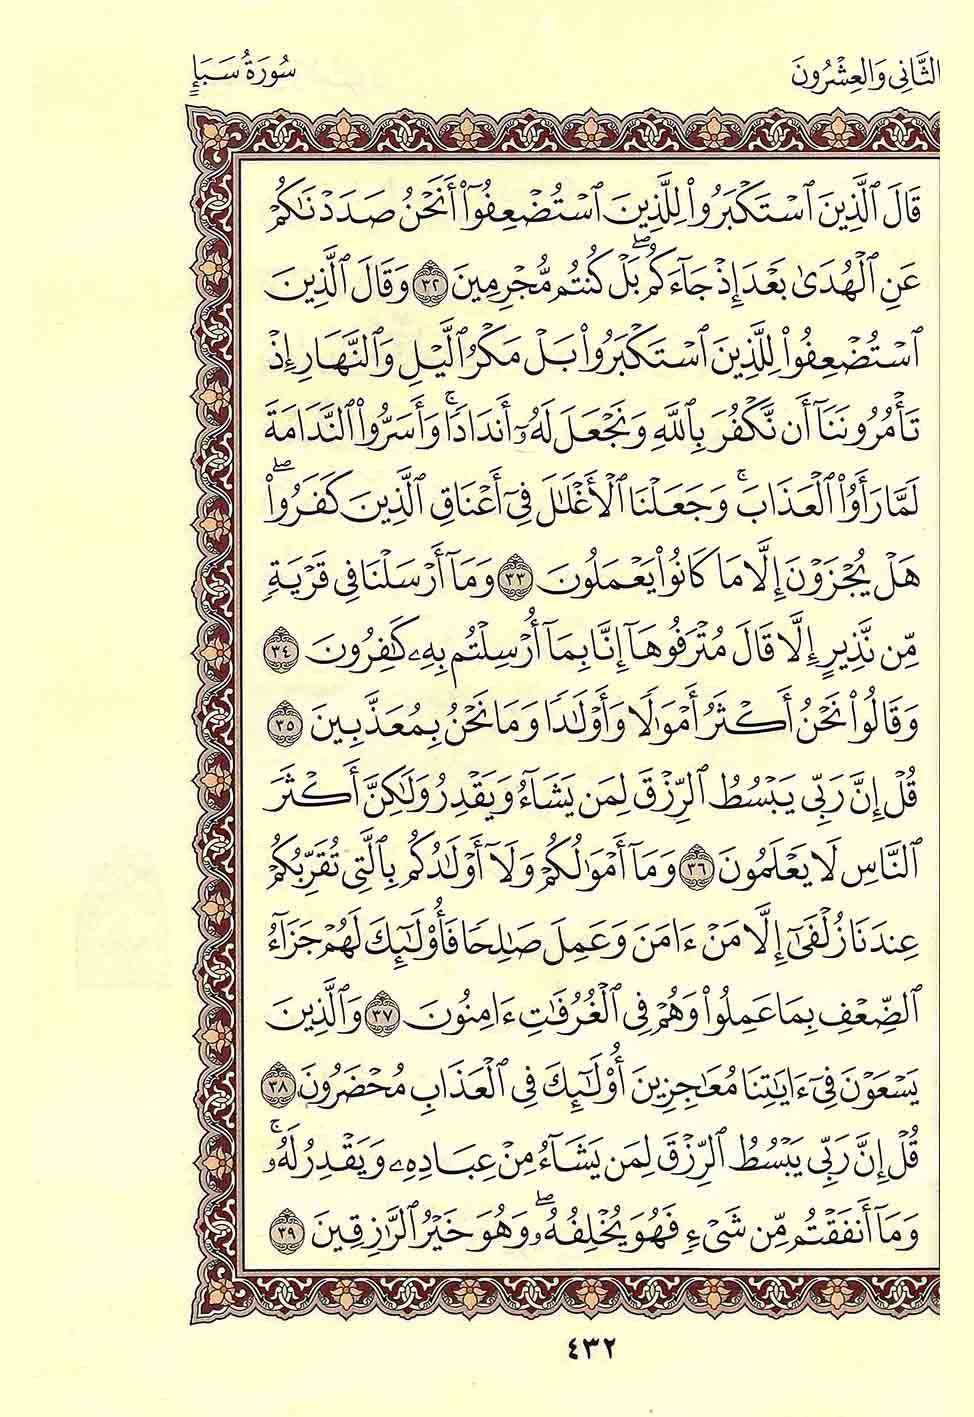 الثَّانِي وَالعِشْرُونَ
سُورَةُ سَبَإٍ
قَالَ ٱلَّذِينَ ٱسْتَكْبَرُوا۟ لِلَّذِينَ ٱسْتُضْعِفُوٓا۟ أَنَحْنُ صَدَدْنَٰكُمْ
عَنِ ٱلْهُدَىٰ بَعْدَ إِذْ جَآءَكُم ۖ بَلْ كُنتُم مُّجْرِمِينَ ٣٢ وَقَالَ ٱلَّذِينَ
ٱسْتُضْعِفُوا۟ لِلَّذِينَ ٱسْتَكْبَرُوا۟ بَلْ مَكْرُ ٱلَّيْلِ وَٱلنَّهَارِ إِذْ
تَأْمُرُونَنَآ أَن نَّكْفُرَ بِٱللَّهِ وَنَجْعَلَ لَهُۥٓ أَندَادًا ۚ وَأَسَرُّوا۟ ٱلنَّدَامَةَ
لَمَّا رَأَوُا۟ ٱلْعَذَابَ ۚ وَجَعَلْنَا ٱلْأَغْلَٰلَ فِىٓ أَعْنَاقِ ٱلَّذِينَ كَفَرُوا۟ ۖ
هَلْ يُجْزَوْنَ إِلَّا مَا كَانُوا۟ يَعْمَلُونَ ٣٣ وَمَآ أَرْسَلْنَا فِى قَرْيَةٍ
مِّن نَّذِيرٍ إِلَّا قَالَ مُتْرَفُوهَآ إِنَّا بِمَآ أُرْسِلْتُم بِهِۦ كَٰفِرُونَ ٣٤
وَقَالُوا۟ نَحْنُ أَكْثَرُ أَمْوَٰلًا وَأَوْلَٰدًا وَمَا نَحْنُ بِمُعَذَّبِينَ ٣٥
قُلْ إِنَّ رَبِّى يَبْسُطُ ٱلرِّزْقَ لِمَن يَشَآءُ وَيَقْدِرُ وَلَٰكِنَّ أَكْثَرَ
ٱلنَّاسِ لَا يَعْلَمُونَ ٣٦ وَمَآ أَمْوَٰلُكُمْ وَلَآ أَوْلَٰدُكُم بِٱلَّتِى تُقَرِّبُكُمْ
عِندَنَا زُلْفَىٰٓ إِلَّا مَنْ ءَامَنَ وَعَمِلَ صَٰلِحًا فَأُو۟لَٰٓئِكَ لَهُمْ جَزَآءُ
ٱلضِّعْفِ بِمَا عَمِلُوا۟ وَهُمْ فِى ٱلْغُرُفَٰتِ ءَامِنُونَ ٣٧ وَٱلَّذِينَ
يَسْعَوْنَ فِىٓ ءَايَٰتِنَا مُعَٰجِزِينَ أُو۟لَٰٓئِكَ فِى ٱلْعَذَابِ مُحْضَرُونَ ٣٨
قُلْ إِنَّ رَبِّى يَبْسُطُ ٱلرِّزْقَ لِمَن يَشَآءُ مِنْ عِبَادِهِۦ وَيَقْدِرُ لَهُۥ ۚ
وَمَآ أَنفَقْتُم مِّن شَىْءٍ فَهُوَ يُخْلِفُهُۥ ۖ وَهُوَ خَيْرُ ٱلرَّٰزِقِينَ ٣٩
٤٣٢